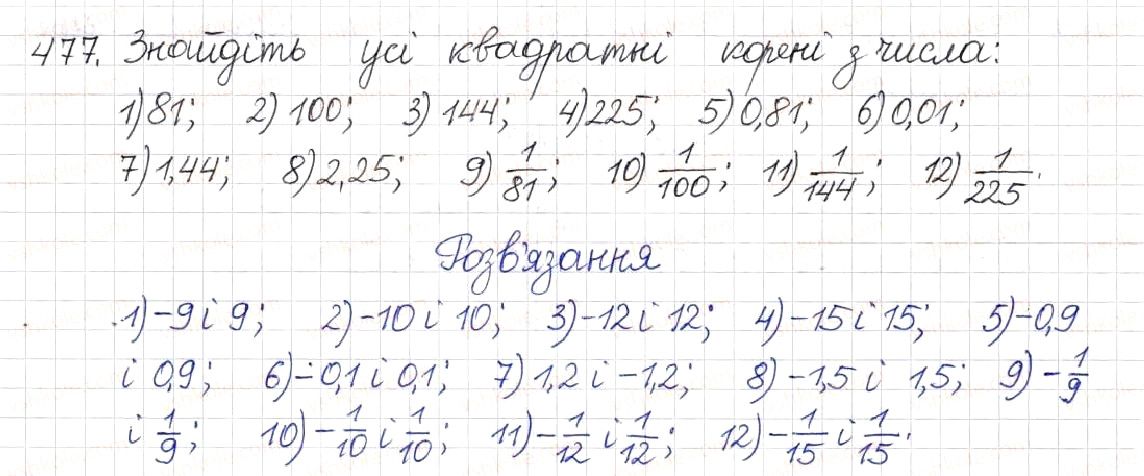 477. Знайдіть усі квадратні корені з числа:
1) 81; 2) 100; 3) 144; 4) 225; 5) 0,81; 6) 0,01;
7) 1,44; 8) 2,25; 9) 1/81; 10) 1/100; 11) 1/144; 12) 1/225.
Розв'язання
1) -9 і 9; 2) -10 і 10; 3) -12 і 12; 4) -15 і 15; 5) -0,9
і 0,9; 6) -0,1 і 0,1; 7) 1,2 і -1,2; 8) -1,5 і 1,5; 9) -1/9
і 1/9; 10) -1/10 і 1/10; 11) -1/12 і 1/12; 12) -1/15 і 1/15.